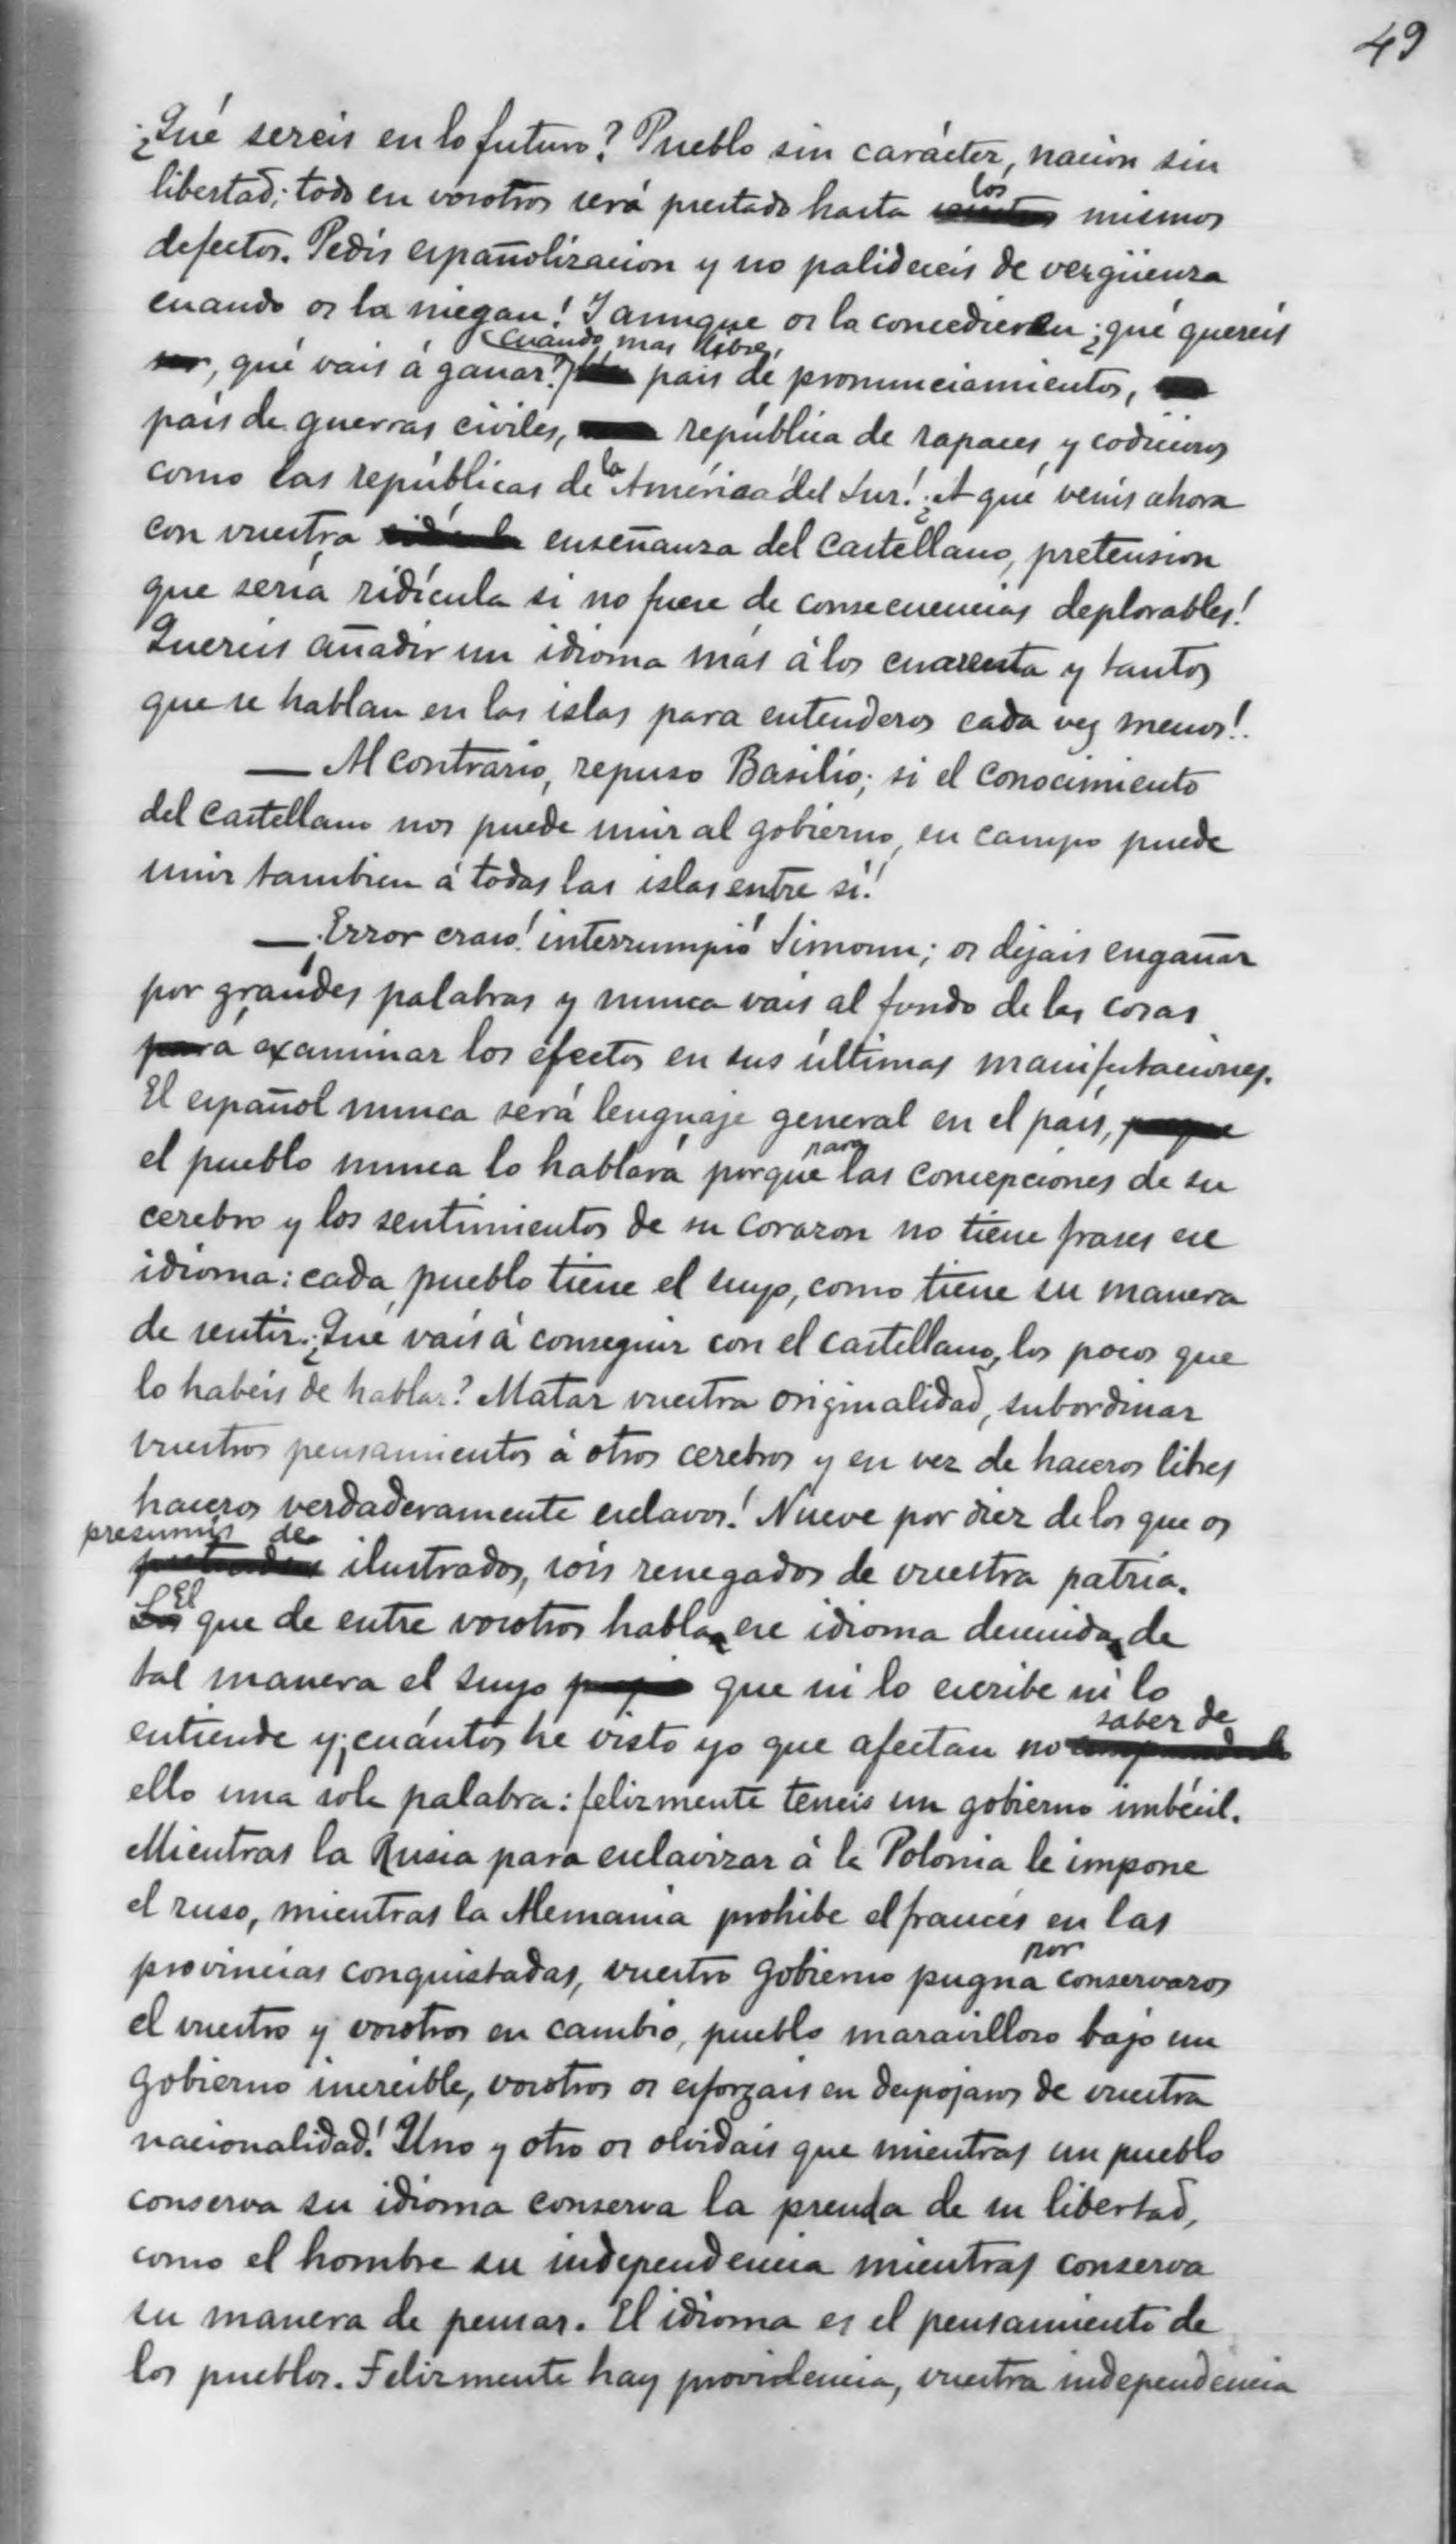 49
¿Qué sereis en lo futuro? Pueblo sin carácter, nacion sin
libertad; todo en vosotros será prestado hasta los mismos
defectos. Pedís españolizacion y no palideceis de vergüenza
cuando os la niegan! Y aunque os la concedieran ¿qué quereis
ser, qué vais á ganar? Cuando mas libre, país de pronunciamientos,
país de guerras civiles, república de rapaces y codiciosos
como las repúblicas de la América del Sur! ¿A qué venís ahora
con vuestra enseñanza del castellano, pretension
que sería ridícula si no fuese de consecuencias deplorables!
Quereis añadir un idioma más á los cuarenta y tantos
que se hablan en las islas para entenderos cada vez menos!.
— Al contrario, repuso Basilio; si el conocimiento
del castellano nos puede unir al gobierno, en campo puede
unir tambien á todas las islas entre sí!
— Error craso! interrumpió Simoun; os dejais engañar
por grandes palabras y nunca vais al fondo de las cosas
á examinar los efectos en sus últimas manifestaciones.
El español nunca será lenguaje general en el país,
el pueblo nunca lo hablará porque para las concepciones de su
cerebro y los sentimientos de su corazon no tiene frases ese
idioma: cada pueblo tiene el suyo, como tiene su manera
de sentir. ¿Qué vais á conseguir con el castellano, los pocos que
lo habeis de hablar? Matar vuestra originalidad, subordinar
vuestros pensamientos á otros cerebros y en vez de haceros libres
haceros verdaderamente esclavos! Nueve por diez de los que os
presumís de ilustrados, sois renegados de vuestra patria.
El que de entre vosotros habla ese idioma descuida de
tal manera el suyo que ni lo escribe ni lo
entiende y ¡cuántos he visto yo que afectan no saber de
ello una sola palabra: felizmente teneis un gobierno imbécil.
Mientras la Rusia para esclavizar á la Polonia le impone
el ruso, mientras la Alemania prohibe el francés en las
provincias conquistadas, vuestro gobierno pugna por conservaros
el vuestro y vosotros en cambio, pueblo maravilloso bajo un
gobierno increible, vosotros os esforzais en despojaros de vuestra
nacionalidad! Uno y otro os olvidais que mientras un pueblo
conserva su idioma conserva la prenda de su libertad,
como el hombre su independencia mientras conserva
su manera de pensar. El idioma es el pensamiento de
los pueblos. Felizmente hay providencia, vuestra independencia